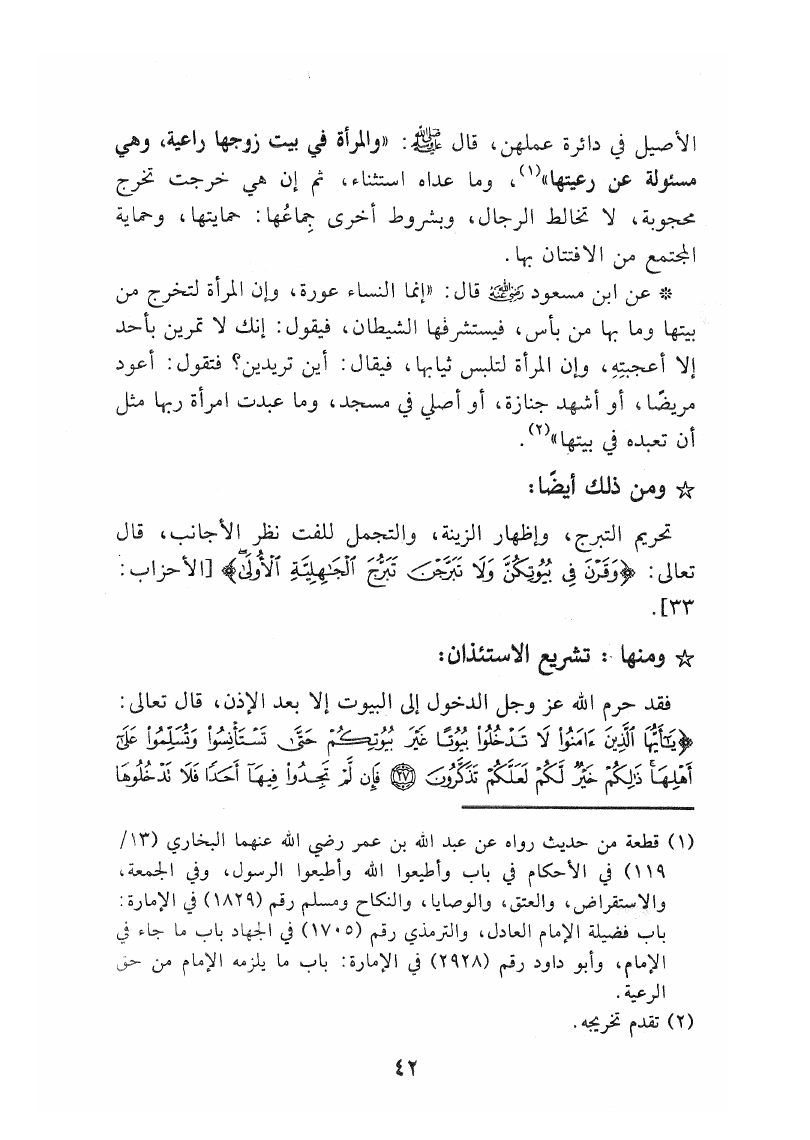 الأصيل في دائرة عملهن، قال ﷺ: «والمرأة في بيت زوجها راعية، وهي
مسئولة عن رعيتها»(١)، وما عداه استثناء، ثم إن هي خرجت تخرج
محجوبة، لا تخالط الرجال، وبشروط أخرى جِماعُها: حمايتها، وحماية
المجتمع من الافتتان بها.
* عن ابن مسعود رضي الله عنه قال: «إنما النساء عورة، وإن المرأة لتخرج من
بيتها وما بها من بأس، فيستشرفها الشيطان، فيقول: إنك لا تمرين بأحد
إلا أعجبتِهِ، وإن المرأة لتلبس ثيابها، فيقال: أين تريدين؟ فتقول: أعود
مريضًا، أو أشهد جنازة، أو أصلي في مسجد، وما عبدت امرأة ربها مثل
أن تعبده في بيتها»(٢).
☆ ومن ذلك أيضًا:
تحريم التبرج، وإظهار الزينة، والتجمل للفت نظر الأجانب، قال
تعالى: ﴿وَقَرْنَ فِى بُيُوتِكُنَّ وَلَا تَبَرَّجْنَ تَبَرُّجَ ٱلْجَٰهِلِيَّةِ ٱلْأُولَىٰ﴾ [الأحزاب:
٣٣].
☆ ومنها: تشريع الاستئذان:
فقد حرم الله عز وجل الدخول إلى البيوت إلا بعد الإذن، قال تعالى:
﴿يَٰٓأَيُّهَا ٱلَّذِينَ ءَامَنُوا۟ لَا تَدْخُلُوا۟ بُيُوتًا غَيْرَ بُيُوتِكُمْ حَتَّىٰ تَسْتَأْنِسُوا۟ وَتُسَلِّمُوا۟ عَلَىٰٓ
أَهْلِهَا ۚ ذَٰلِكُمْ خَيْرٌ لَّكُمْ لَعَلَّكُمْ تَذَكَّرُونَ ٢٧ فَإِن لَّمْ تَجِدُوا۟ فِيهَآ أَحَدًا فَلَا تَدْخُلُوهَا
(١) قطعة من حديث رواه عن عبد الله بن عمر رضي الله عنهما البخاري (١٣/
١١٩) في الأحكام في باب وأطيعوا الله وأطيعوا الرسول، وفي الجمعة،
والاستقراض، والعتق، والوصايا، والنكاح ومسلم رقم (١٨٢٩) في الإمارة:
باب فضيلة الإمام العادل، والترمذي رقم (١٧٠٥) في الجهاد باب ما جاء في
الإمام، وأبو داود رقم (٢٩٢٨) في الإمارة: باب ما يلزمه الإمام من حق
الرعية.
(٢) تقدم تخريجه.
٤٢